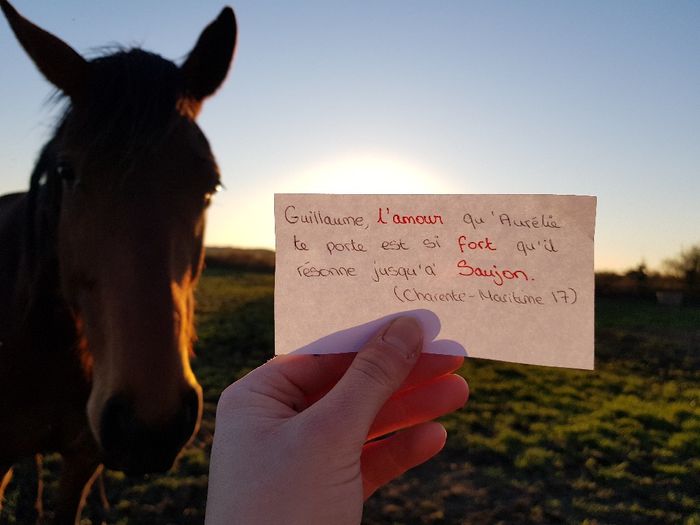 Guillaume, l'amour qu'Aurélie
te porte est si fort qu'il
résonne jusqu'à Saujon.
(Charente-Maritime 17)